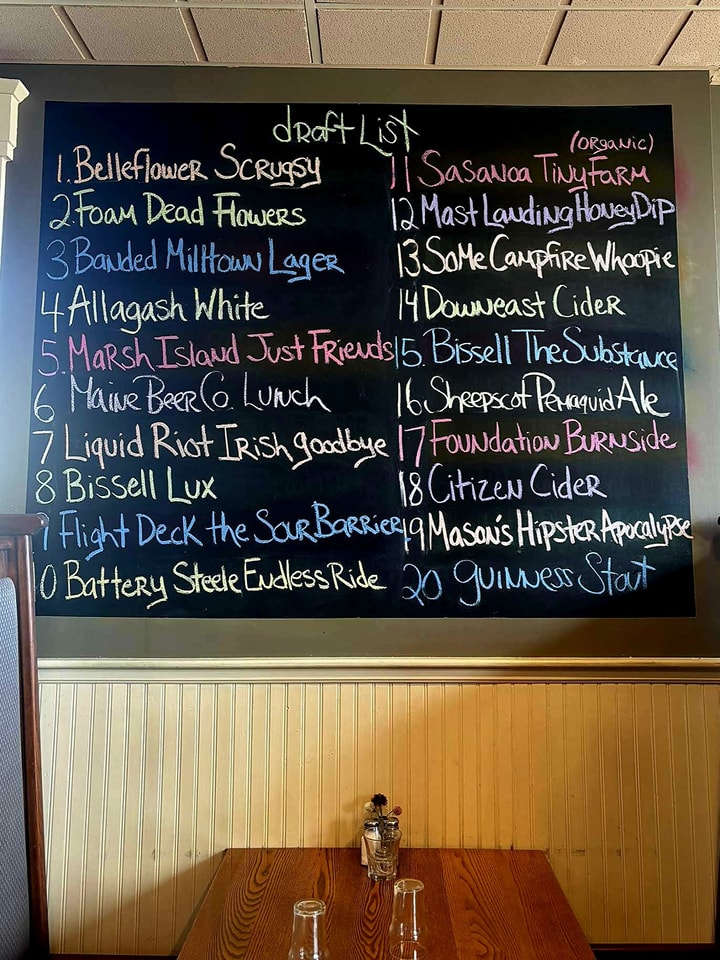 draft List
1. Belleflower Scrugsy
2. Foam Dead Flowers
3 Banded Milltown Lager
4 Allagash White
5. Marsh Island Just Friends
6 Maine Beer Co. Lunch
7 Liquid Riot Irish goodbye
8 Bissell Lux
9 Flight Deck the Sour Barrier
0 Battery Steele Endless Ride
(Organic)
11 Sasanoa Tiny Farm
12 Mast Landing Honey Dip
13 SoMe Campfire Whoopie
14 Downeast Cider
15. Bissell The Substance
16 Sheepscot Pemaquid Ale
17 Foundation Burnside
18 Citizen Cider
19 Mason's Hipster Apocalypse
20 Guinness Stout